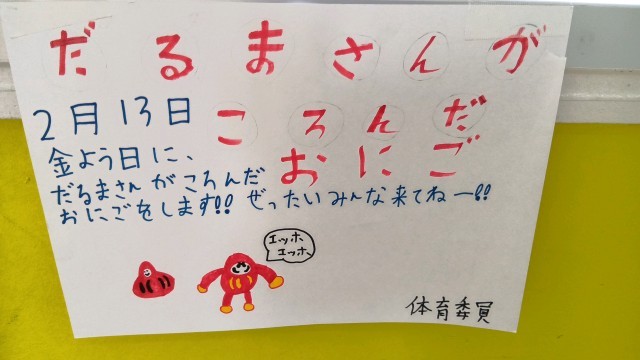 だるまさんが
ころんだ
おにご
2月13日
金よう日に、
だるまさんがころんだ
おにごをします!! ぜったいみんな来てねー!!
エッホ
エッホ、
体育委員